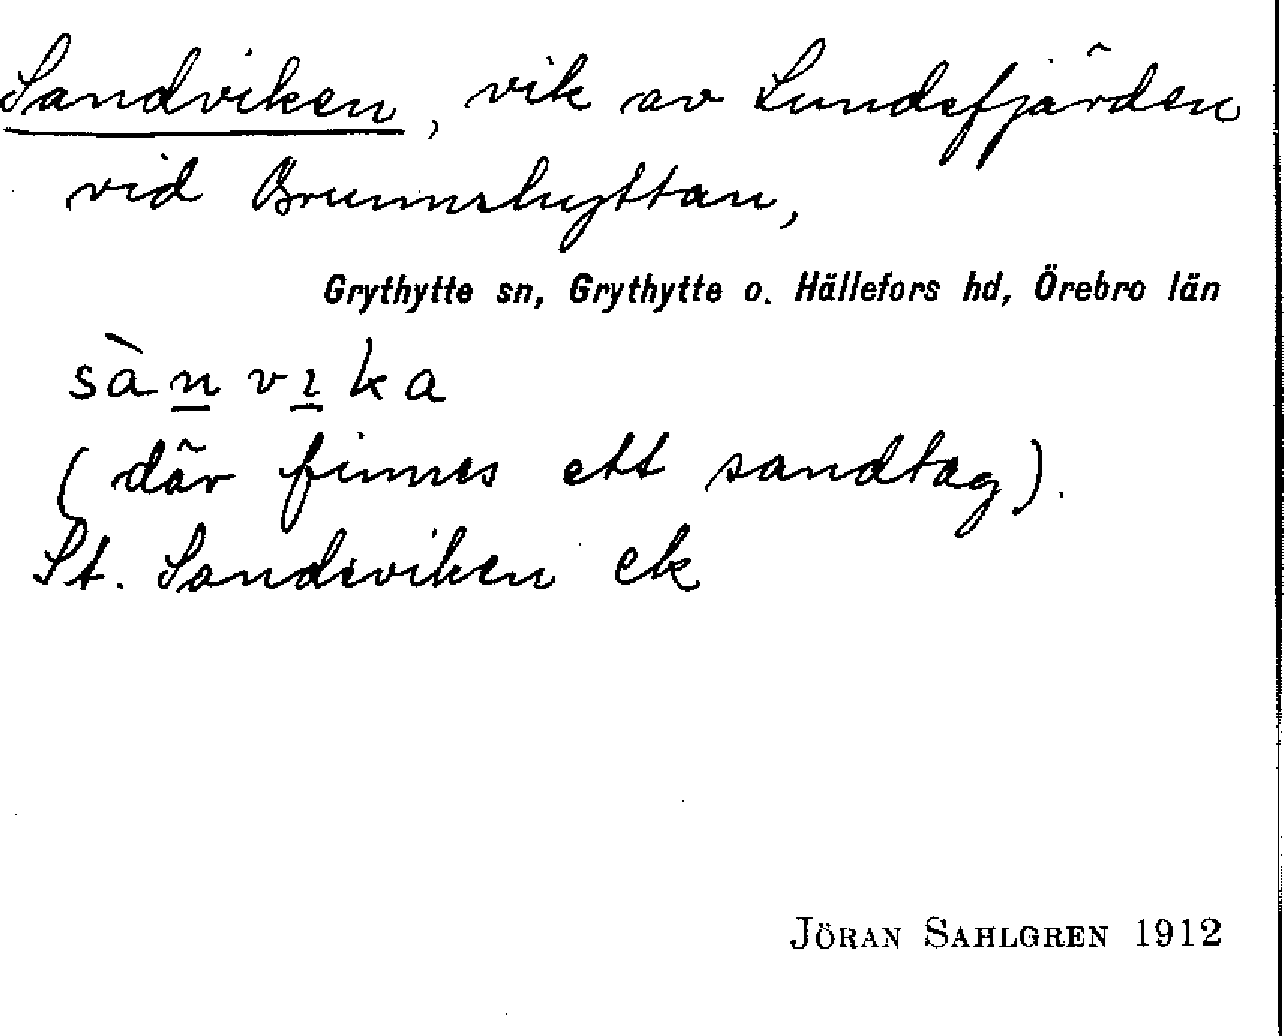 Sandviken, vik av Lundsfjärden
vid Brunnshyttan,
Grythytte sn, Grythytte o. Hällefors hd, Örebro län
sànvıka
(där finnes ett sandtag).
St. Sandsviken ek
JÖRAN SAHLGREN 1912